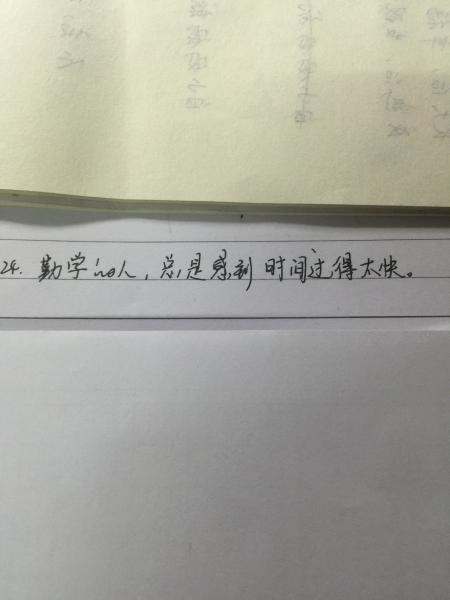 24. 勤学的人，总是感到时间过得太快。